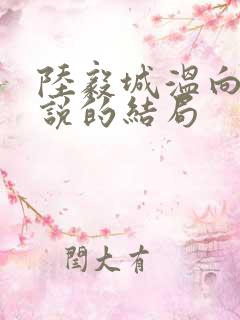 陸毅城溫向
說的結局
閆大有